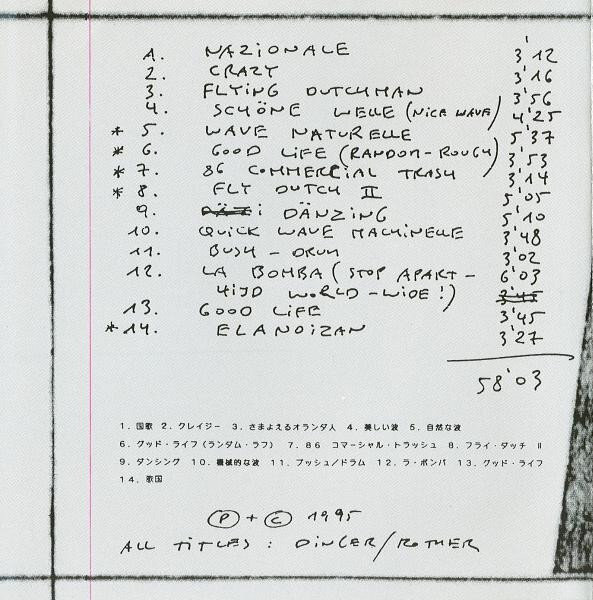 1. NAZIONALE 3'12
2. CRAZY 3'16
3. FLYING DUTCHMAN 3'56
4. SCHÖNE WELLE (NICE WAVE) 4'25
* 5. WAVE NATURELLE 5'37
* 6. GOOD LIFE (RANDOM-ROUGH) 3'53
* 7. 86 COMMERCIAL TRASH 3'14
* 8. FLY DUTCH II 5'05
9. DÄNZING 5'10
10. QUICK WAVE MACHINELLE 3'48
11. BUSH - DRUM 3'02
12. LA BOMBA (STOP APART- 6'03
HIJD WORLD-WIDE!) 3'45
13. GOOD LIFE 3'45
* 14. ELANOIZAN 3'27
58'03
1. 国歌 2. クレイジー 3. さまよえるオランダ人 4. 美しい波 5. 自然な波
6. グッド・ライフ(ランダム・ラフ) 7. 86 コマーシャル・トラッシュ 8. フライ・ダッチ II
9. ダンシング 10. 機械的な波 11. ブッシュ/ドラム 12. ラ・ボンバ 13. グッド・ライフ
14. 歌国
Ⓟ + © 1995
ALL TITLES : DINGER/ROTHER